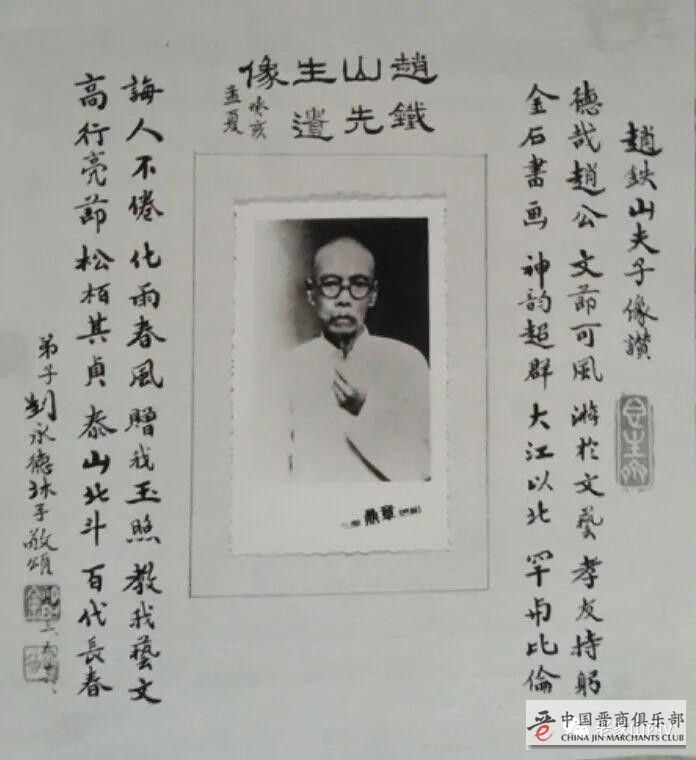 趙鐵山先生遺像
癸亥孟夏
趙鉄山夫子像讃
德哉趙公 文節可風 游於文藝 孝友持躬
金石書画 神韵超群 大江以北 罕与比倫
誨人不倦 化雨春風 贈我玉照 教我藝文
高行亮節 松栢其貞 泰山北斗 百代長春
弟子劉永德拜手敬頌
鼎章
中国晋商俱乐部
CHINA JIN MARCHANTS CLUB